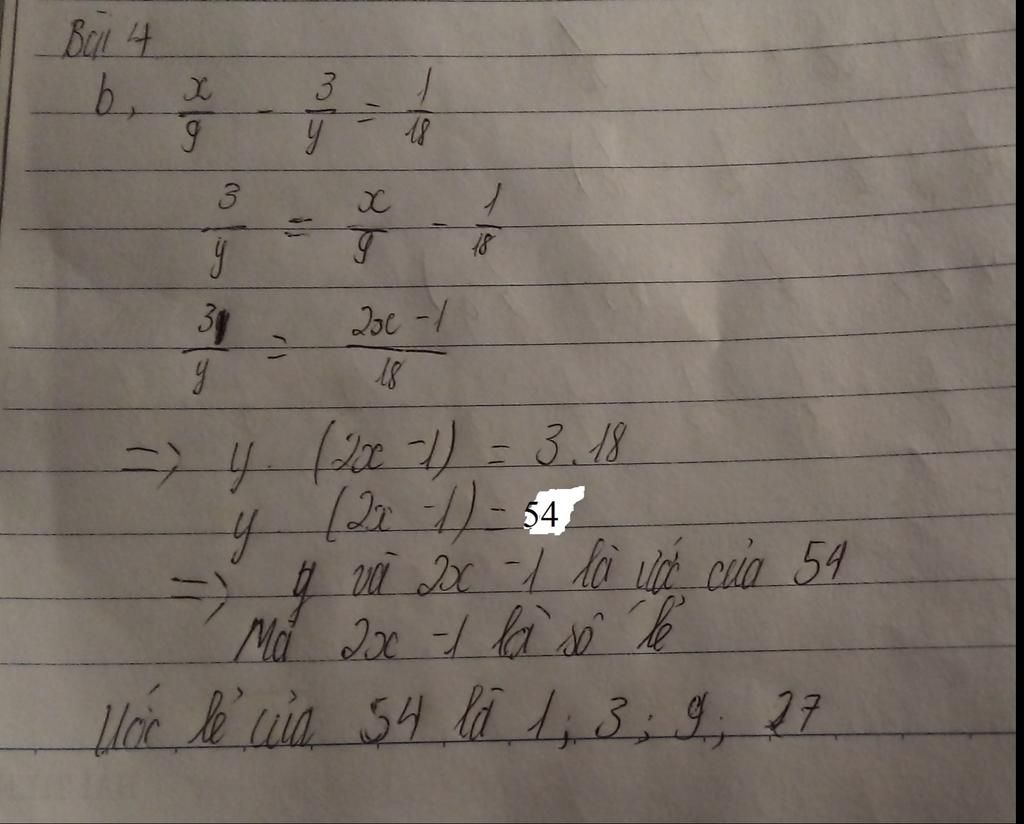 Bài 4
b, x/9 - 3/y = 1/18
3/y = x/9 - 1/18
3/y = 2x - 1/18
=> y. (2x - 1) = 3.18
y (2x - 1) = 54
=> y và 2x - 1 là ước của 54
Mà 2x - 1 là số lẻ
Ước lẻ của 54 là 1; 3; 9; 27